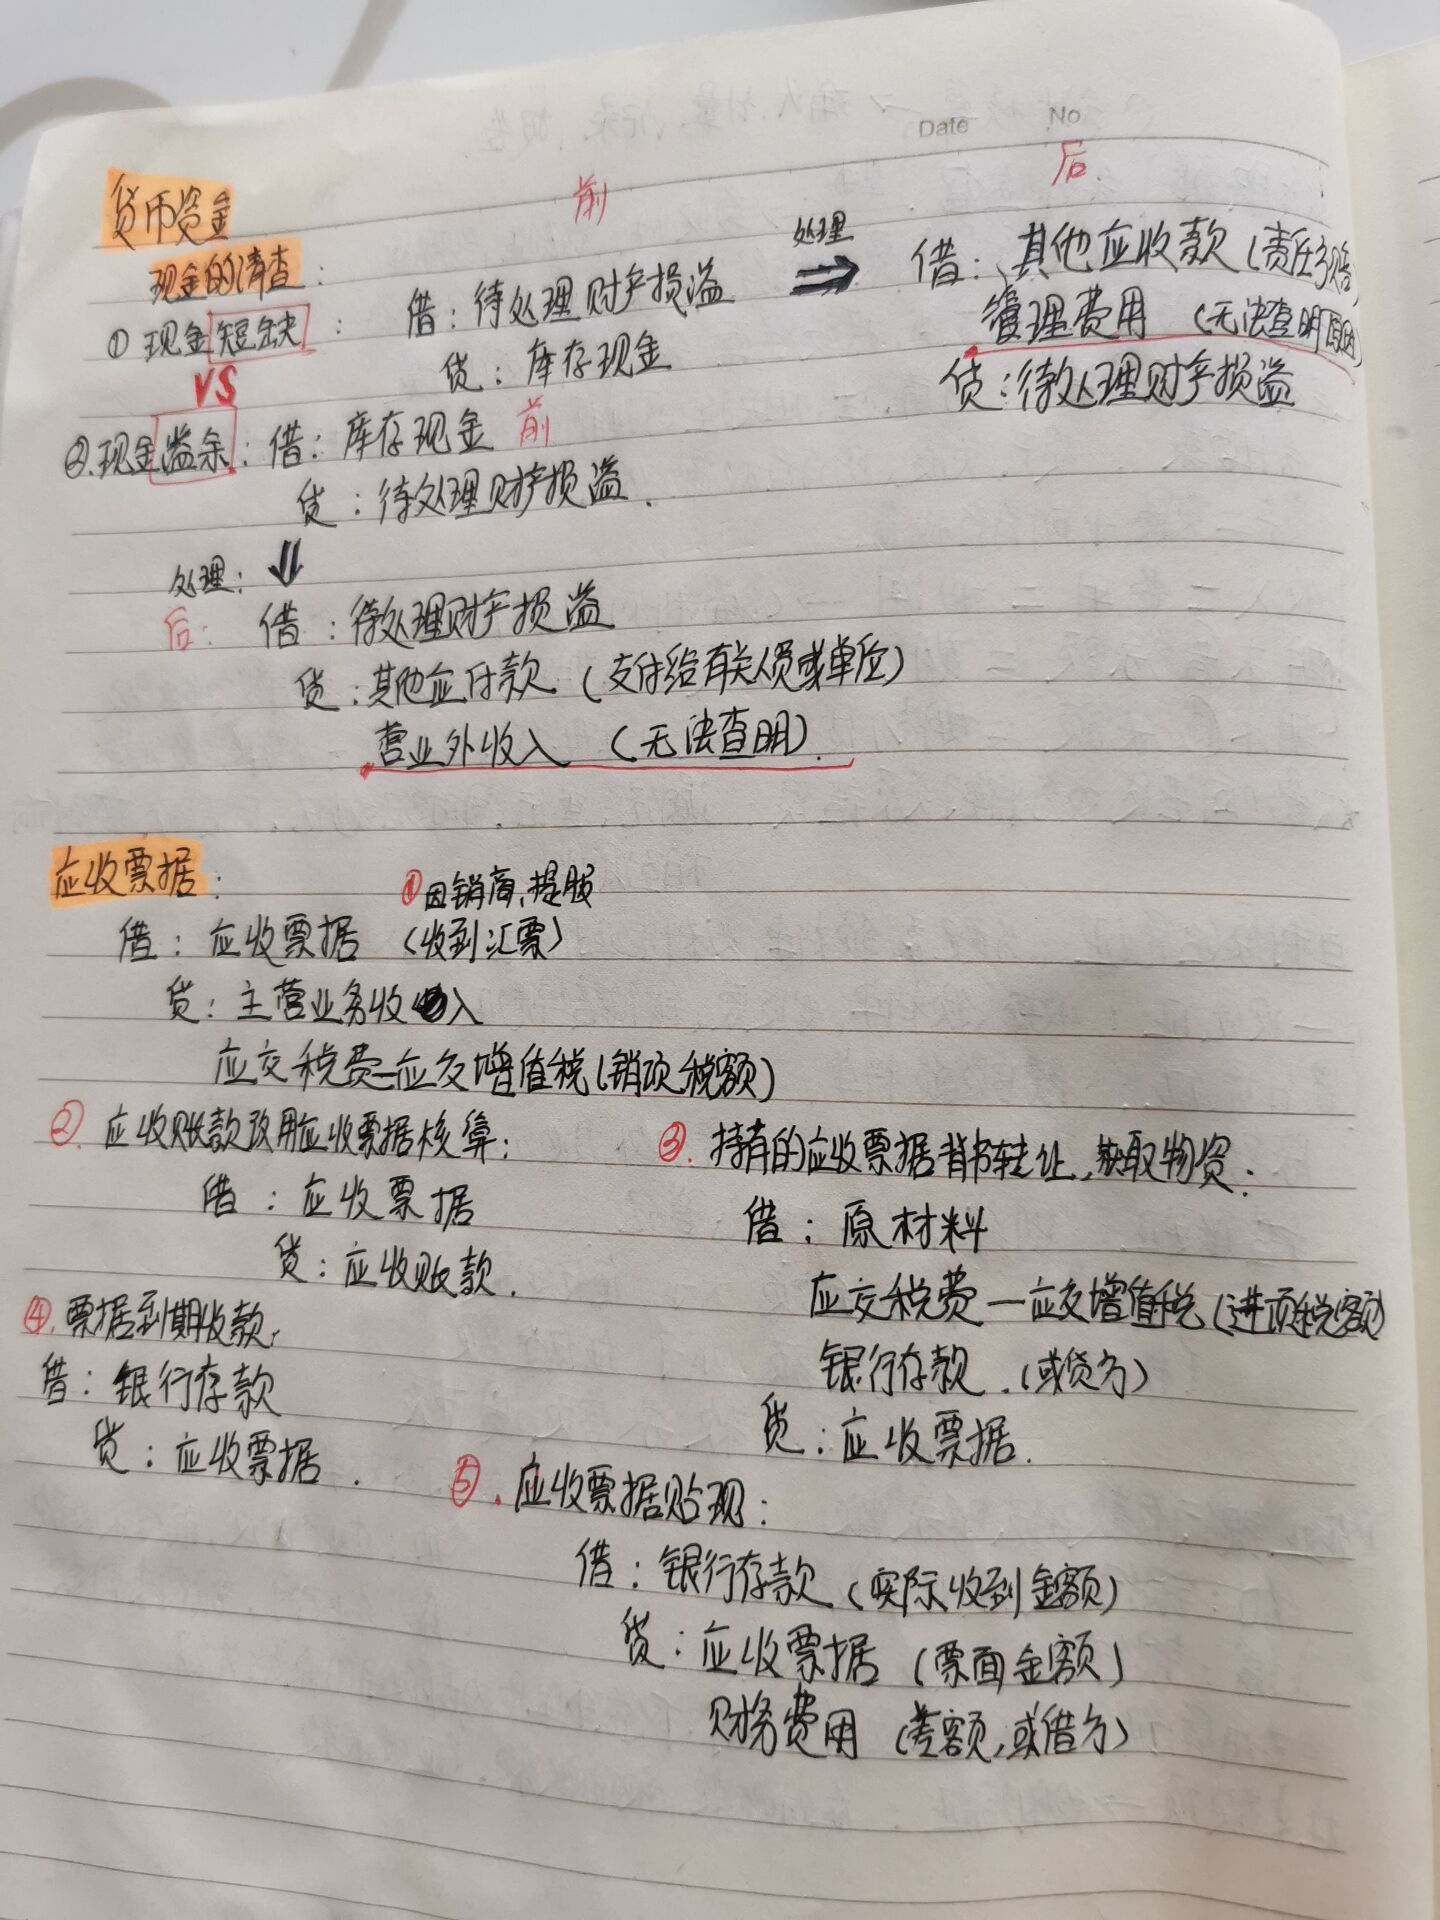 Date No
前 后.
货币资金
现金的清查:
①现金短缺: 借:待处理财产损溢
贷:库存现金
处理
⇒
借:其他应收款(责任方赔
管理费用 (无法查明原因)
贷:待处理财产损溢
VS
②.现金溢余:借:库存现金 前
贷:待处理财产损溢.
处理: ⇓
后: 借:待处理财产损溢
贷:其他应付款(支付给有关人员或单位)
营业外收入 (无法查明).
应收票据: ①因销商,提服
借:应收票据 (收到汇票)
贷:主营业务收入
应交税费—应交增值税(销项税额)
②.应收账款改用应收票据核算:
借:应收票据
贷:应收账款.
③.持有的应收票据背书转让,获取物资:
借:原材料
应交税费—应交增值税(进项税额)
银行存款.(或贷方)
贷:应收票据.
④.票据到期收款:
借:银行存款
贷:应收票据.
⑤.应收票据贴现:
借:银行存款(实际收到金额)
贷:应收票据(票面金额)
财务费用(差额,或借方)